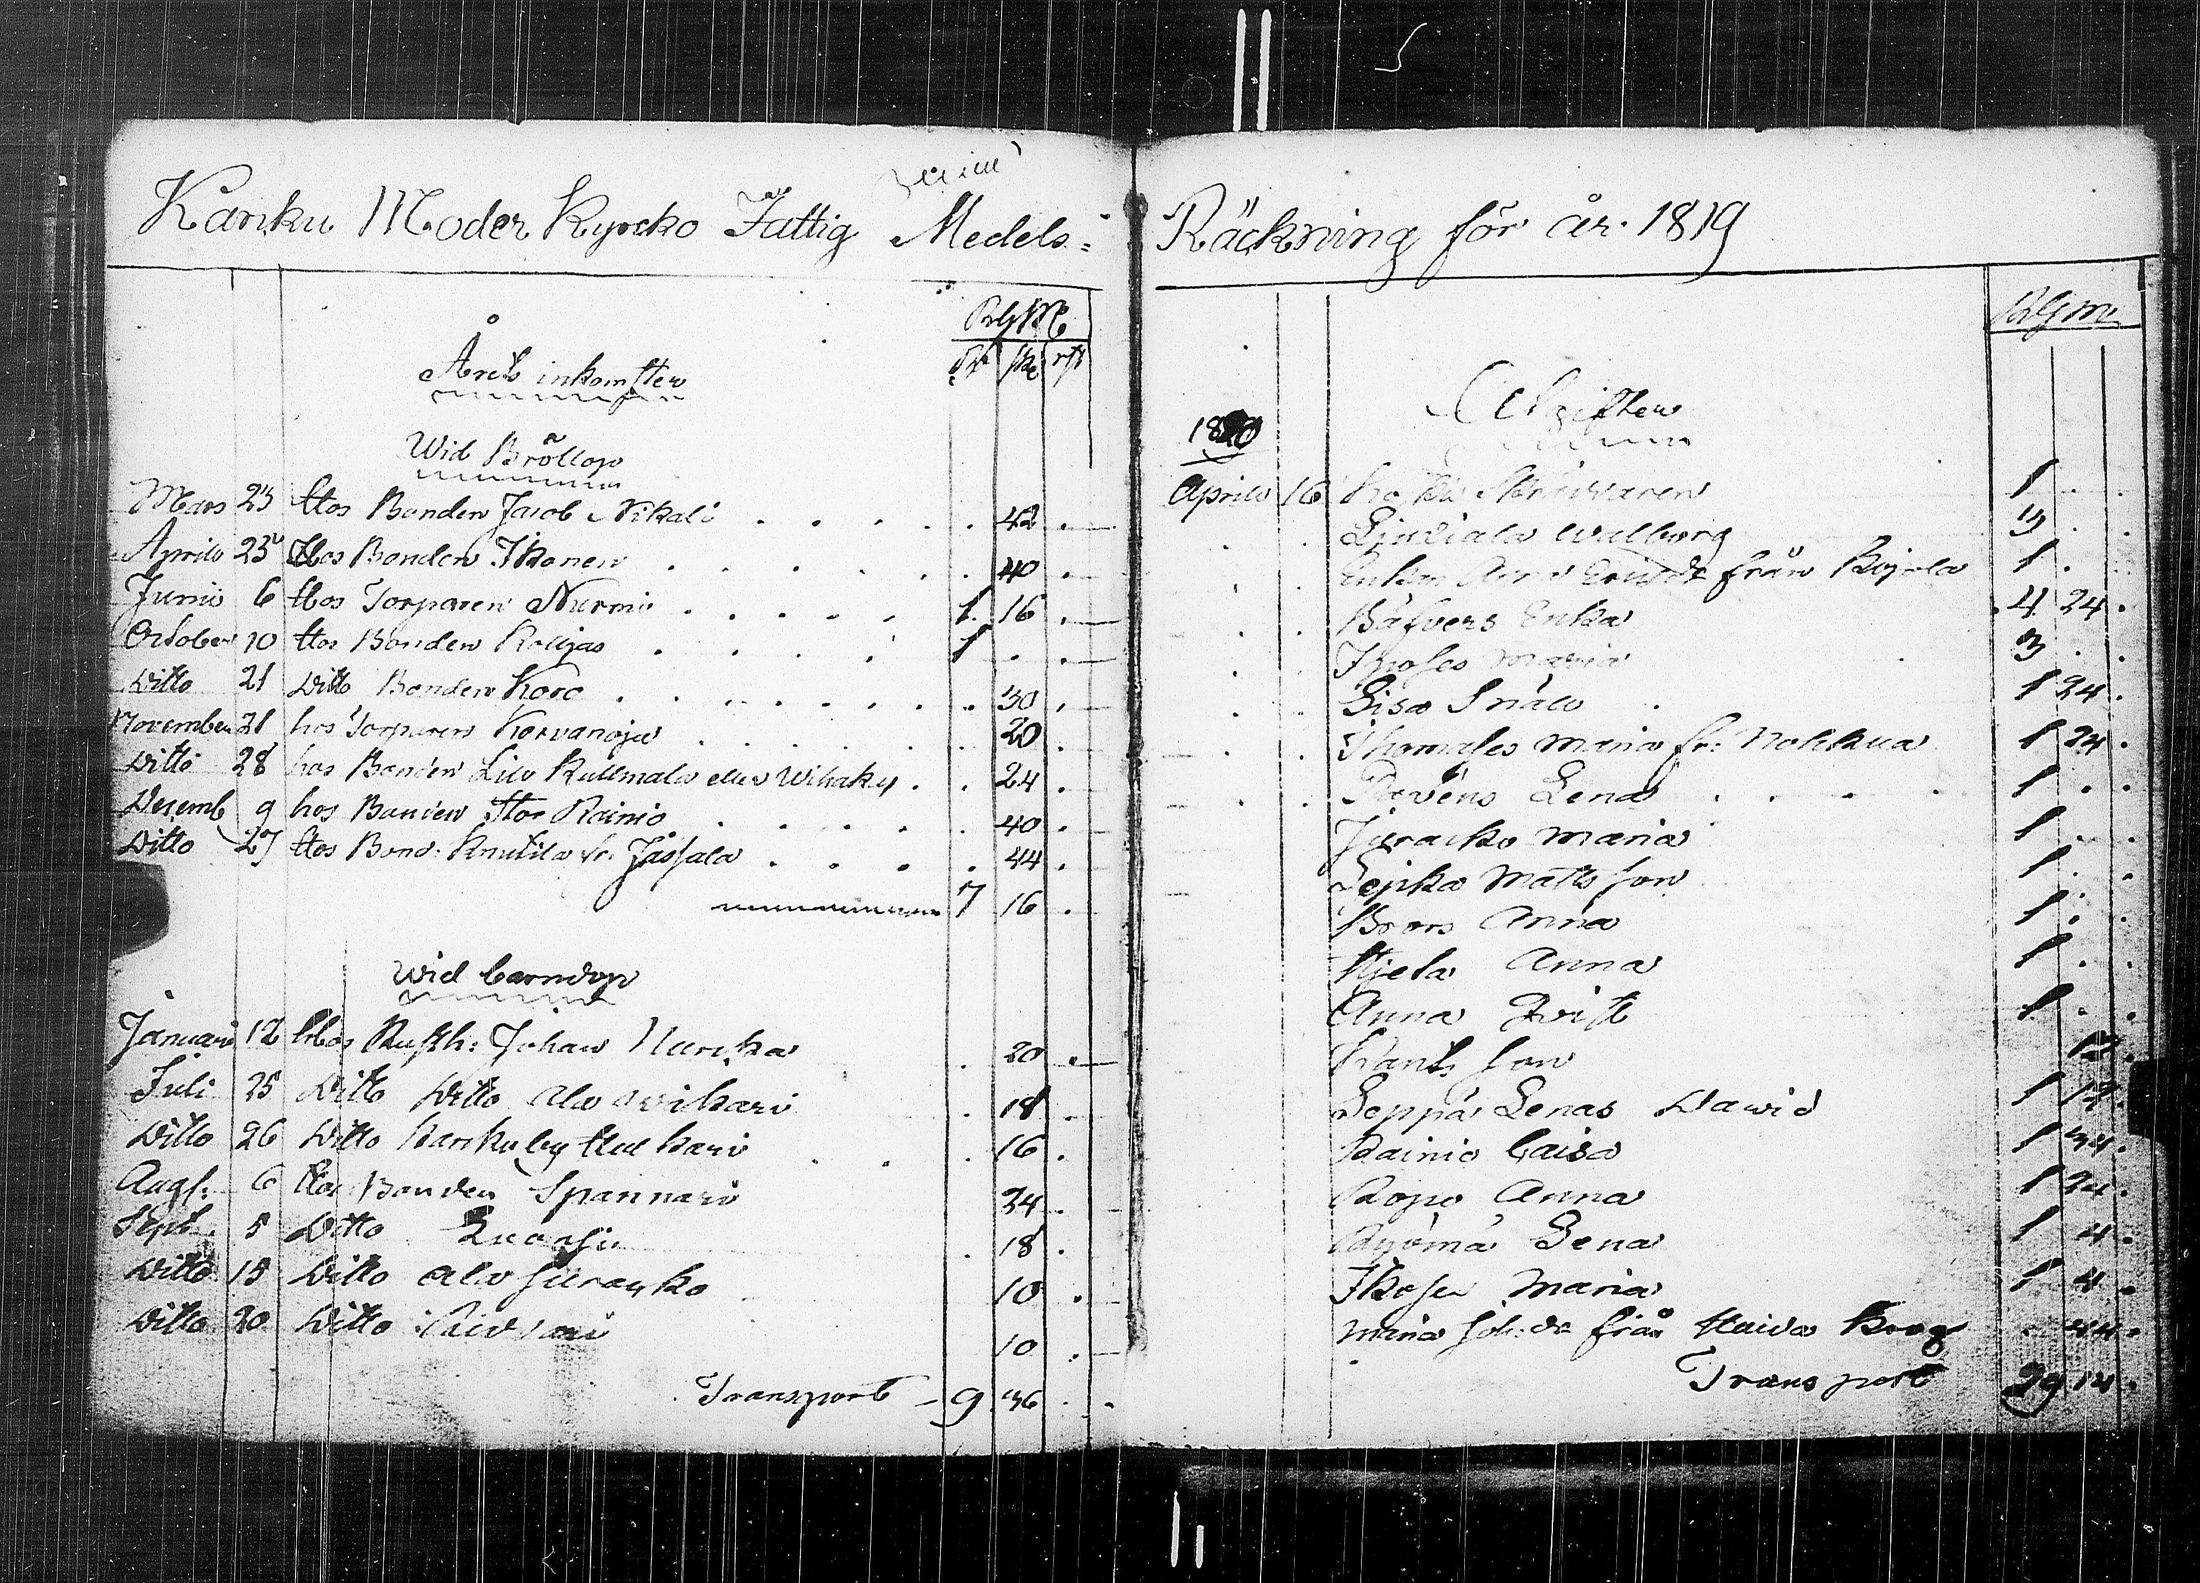 Kanku Moder Kyrcko Fattig Medels=
Räckning för år. 1819
RGM
Rd sk rst
Årets inkomster
Wid Bröllop
Mars 23 Hos Bonden Jacob Nikali . . . . . 42 .
Aprill 23 Hos Bonden Ikonen . . . . . . 40 .
Junio 6 Hos Torparen Nurmi . . . . . 1. 16 .
October 10 Hos Bonden Kolljas . . . . 1 . .
Ditto 21 Ditto Bonden Koro . . . . . . . 30 .
November 21 hos Torparen Korvanoja . . . . . . 20 .
Ditto 28 hos Bonden Lill Kullmala eller Wihaky . . 24 .
Decemb 9 hos Bonden Stor Rainio . . . . . 40 .
Ditto 27 Hos Bond. Knutila fr. Jässala . . . . 44 .
7 16 .
Wid barndop
Januari 12 Hos Rusth: Johan Nuricka . 20 .
Juli 25 Ditto Ditto Ala Wikari . 18 .
Ditto 26 Ditto Karkuby Hukari . . . 16 .
Augs: 6 Hos Bonden Spannari 24 .
Sept. 5 Ditto . 18 .
Ditto 15 Ditto Ala Juracko 10 .
Ditto 20 Ditto 10 .
Transport 9 36 .
RGM
Utgifter
1820
Aprill 16 Skrivaren 1 . .
Lindiala Wallborg 3 . .
Enkan Anna från Kojola 1 . .
Bäfvers Enka 4 24 .
Ikoses Maria 3 . .
Lisa Snäll 1 24 .
Thomases Maria fr: Nohkua 1 24 .
Rävens Lena . . . . 1 . .
Juracko Maria 1 . .
Lepka Matts son 1 . .
Brors Anna 1 . .
Kjela Anna 1 . .
Anna Qvist 1 . .
Hants son 12 .
Seppä Lenas David 1 12 .
Rainio Caisa 1 34 .
Ropo Anna 1 24 .
Ryömä Lena 1 4 .
Ikosen Maria 1 4 .
Maria Joh:dr från Haida Krog . 44 .
Transport 29 14 .